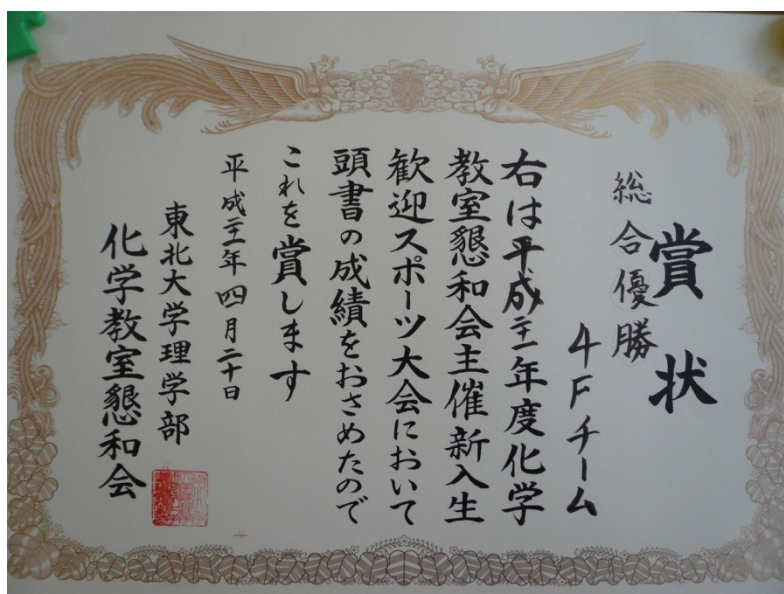 賞状
総合優勝
4Fチーム
右は平成二十一年度化学
教室懇和会主催新入生
歓迎スポーツ大会において
頭書の成績をおさめたので
これを賞します
平成二十一年四月二十日
東北大学理学部
化学教室懇和会